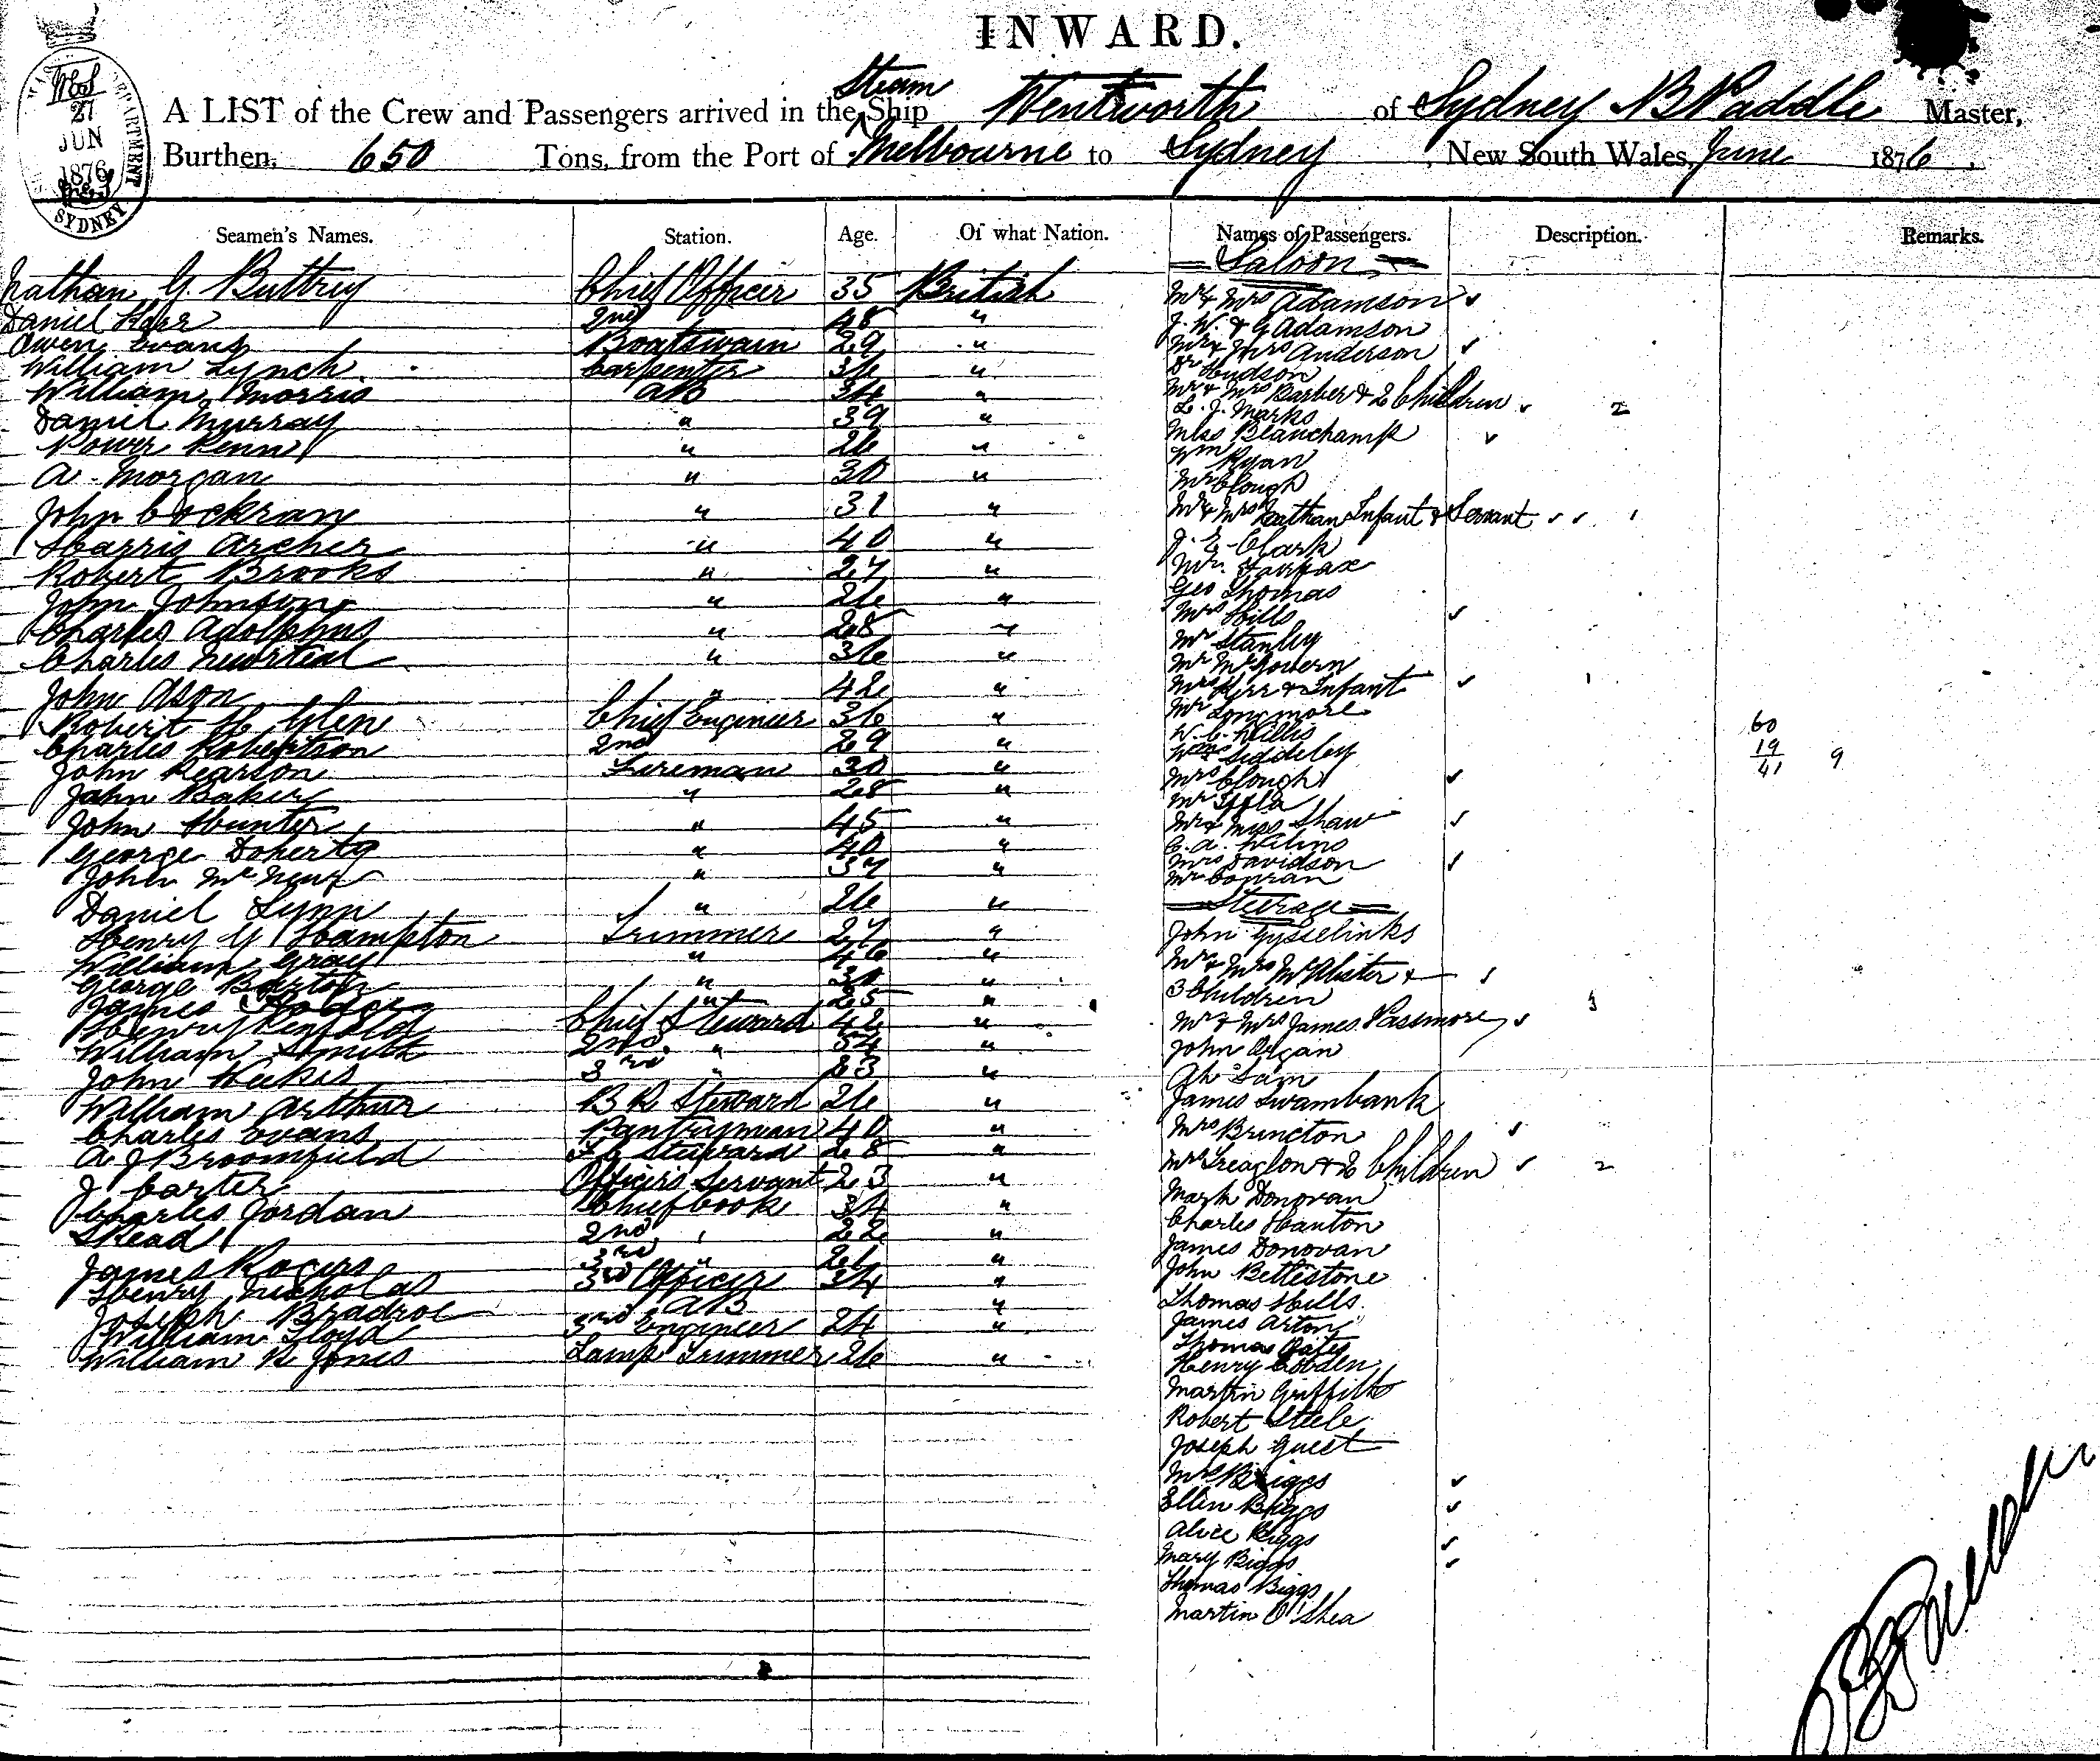 INWARD.
27
JUN
1876
SYDNEY
A LIST of the Crew and Passengers arrived in the Steam Ship Wentworth of Sydney B Paddle Master,
Burthen, 650 Tons, from the Port of Melbourne to Sydney, New South Wales, June 1876.
Seamen's Names. Station. Age. Of what Nation. Names of Passengers. Description. Remarks.
Saloon
Nathan G. Buttrey Chief Officer 35 British Mr & Mrs Adamson
Daniel 2nd 48 " J. W. & G Adamson
Owen Evans Boatswain 29 " Mr & Mrs Anderson
William Lynch Carpenter 36 " Dr Hudson
William Morris AB 34 " Mr & Mrs Barber & 2 Children 2
Daniel Murray " 39 " L. J. Marks
Power Penn " 26 " Miss Blanchamp
A. Morgan " 30 " Wm Ryan
Mr Clough
John Cockran " 31 " Mr & Mrs Nathan Infant & Servant 1
Harris Archer " 40 " J. E. Clark
Robert Brooks " 27 " Mr. Fairfax
John Johnson " 26 " Geo Thomas
Charles Adolphus " 28 " Mrs Hills
Charles " 36 " Mr Stanley
Mr McGovern
John Ason " 42 " Mrs Kerr & Infant 1
Robert H Glen Chief Engineer 36 " Mr Longmore
60
Charles Robertson 2nd 29 " W. C. Willis
19
John Pearson Fireman 30 " Wm Siddeley
41 9
John Baker " 28 " Mrs Clough
John Hunter " 45 " Mr & Miss Shaw
George Doherty " 40 " C. A.
John " 37 " Mrs Davidson
Mr Conran
Daniel Lynn " 26 " Steerage
Henry G Hampton Trimmer 27 " John Gysselinks
William Gray " 46 " Mr & Mrs McAlister &
George Barton " 30 " 3 Children 3
James " 25 "
Henry Penfold Chief Steward 42 " Mr & Mrs James Passmore
William Smith 2nd " 54 " John Organ
John Weekes 3rd " 23 " Ah Sam
William Arthur B R Steward 26 " James Swambank
Charles Evans Pantryman 40 " Mrs Brincton
A J Broomfield F C Steward 28 " Mrs Treaglon & 2 Children 2
J Carter Officers Servant 23 " Mark Donovan
Charles Jordan Chief Cook 34 " Charles Hanton
S Read 2nd " 22 " James Donovan
James Rogers 3rd " 21 " John Bettlestone
Henry Nicholas 3rd Officer 34 " Thomas Hills
Joseph Bradroe AB " James Arton
William Lloyd 3rd Engineer 24 " Thomas Oates
William R Jones Lamp Trimmer 26 " Henry Cobden
Martin Griffiths
Robert Steele
Joseph Guest
Mrs Biggs
Ellen Biggs
Alice Biggs
Mary Biggs
Thomas Biggs
Martin O'Shea